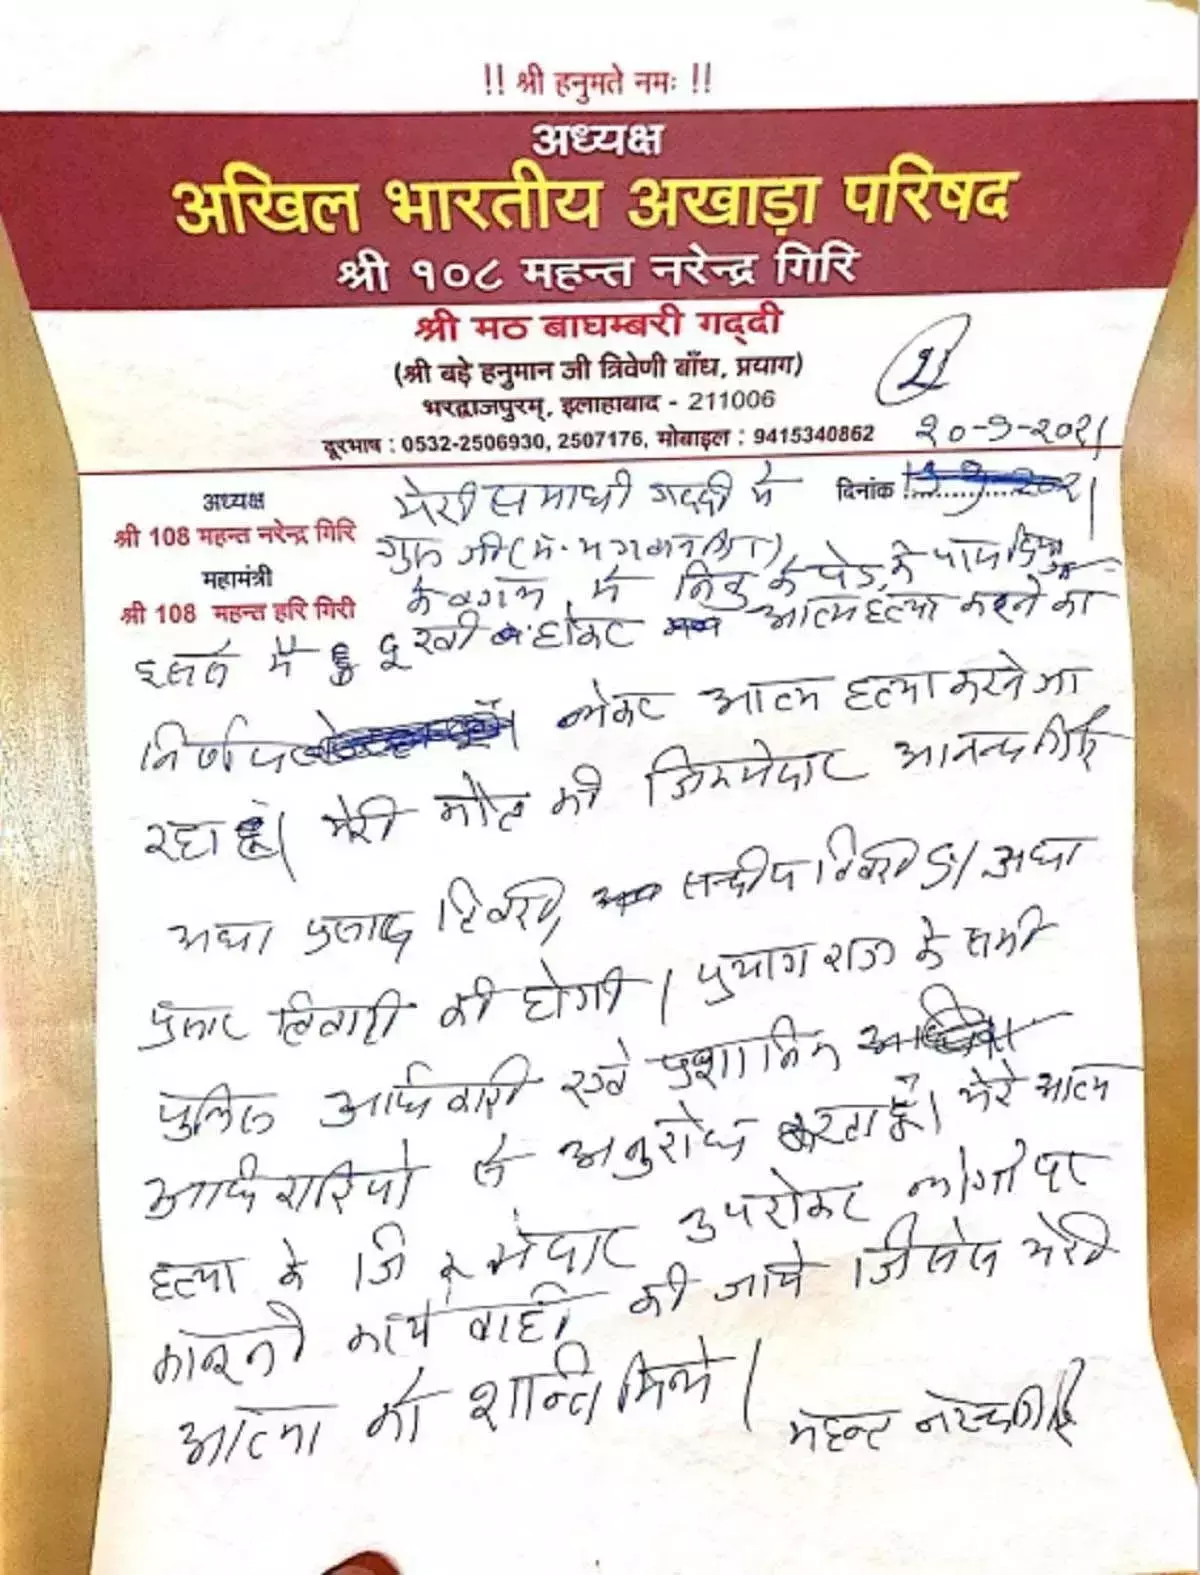 !! श्री हनुमते नमः !!
अध्यक्ष
अखिल भारतीय अखाड़ा परिषद
श्री १०८ महन्त नरेन्द्र गिरि
श्री मठ बाघम्बरी गद्दी
(श्री बड़े हनुमान जी त्रिवेणी बाँध, प्रयाग)
भरद्वाजपुरम्, इलाहाबाद - 211006
दूरभाष : 0532-2506930, 2507176, मोबाइल : 9415340862
२०-९-२०२१
दिनांक
अध्यक्ष
श्री 108 महन्त नरेन्द्र गिरि
महामंत्री
श्री 108 महन्त हरि गिरी
मेरी समाधी गद्दी में
गुरु जी
के बगल में के पेड़ के पास
में दुखी होकर आत्म हत्या करने का
निर्णय लेकर आत्म हत्या करने जा
रहा हूँ। मेरी मौत की जिम्मेदार आनन्द गिरि
प्रसाद तिवारी सन्दीप तिवारी
तिवारी की होगी। प्रयागराज के सभी
पुलिस अधिकारी एवं
अधिकारियों से अनुरोध करता हूँ। मेरे आत्म
हत्या के जिम्मेदार उपरोक्त लोगों पर
कानूनी कार्यवाही की जाये जिससे मेरी
आत्मा को शान्ति मिले।
महन्त नरेन्द्र गिरि